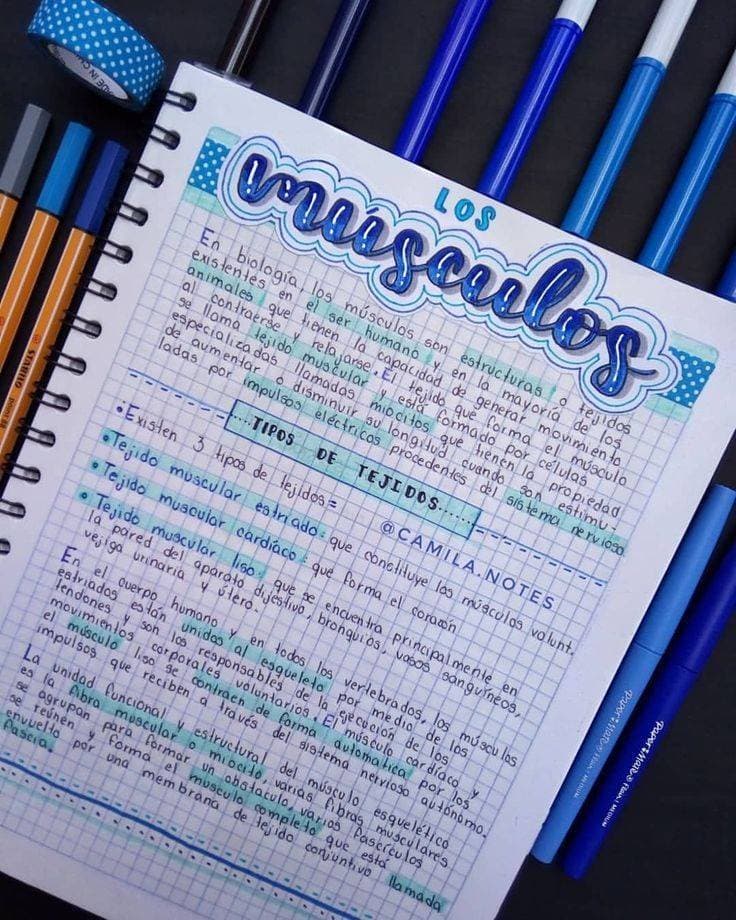 LOS
músculos
En biología, los músculos son estructuras o tejidos
existentes en el ser humano y en la mayoría de los
animales que tienen la capacidad de generar movimiento
al contraerse y relajarse. El tejido que forma el músculo
se llama tejido muscular y está formado por células
especializadas llamadas miocitos que tienen la propiedad
de aumentar o disminuir su longitud cuando son estimu-
ladas por impulsos eléctricos procedentes del sistema nervioso
....TIPOS DE TEJIDOS......
•Existen 3 tipos de tejidos=
@CAMILA.NOTES
•Tejido muscular estriado: que constituye los músculos volunt.
•Tejido muscular cardíaco: que forma el corazón
•Tejido muscular liso: que se encuentra principalmente en
la pared del aparato digestivo, bronquios, vasos sanguíneos,
vejiga urinaria y útero.
En el cuerpo humano y en todos los vertebrados, los músculos
estriados están unidos al esqueleto por medio de los
tendones y son los responsables de la ejecución de los
movimientos corporales voluntarios. El músculo cardíaco y
el músculo liso se contraen de forma automática por los
impulsos que reciben a través del sistema nervioso autónomo.
La unidad funcional y estructural del músculo esquelético
es la fibra muscular o miocito, varias fibras musculares
se agrupan para formar un obstáculo, varios fascículos
se reúnen y forma el músculo completo que está
envuelto por una membrana de tejido conjuntivo llamada
fascia.
MADE IN
STABILO
Paper Mate® Flair MEDIUM
Paper Mate® Flair MEDIUM